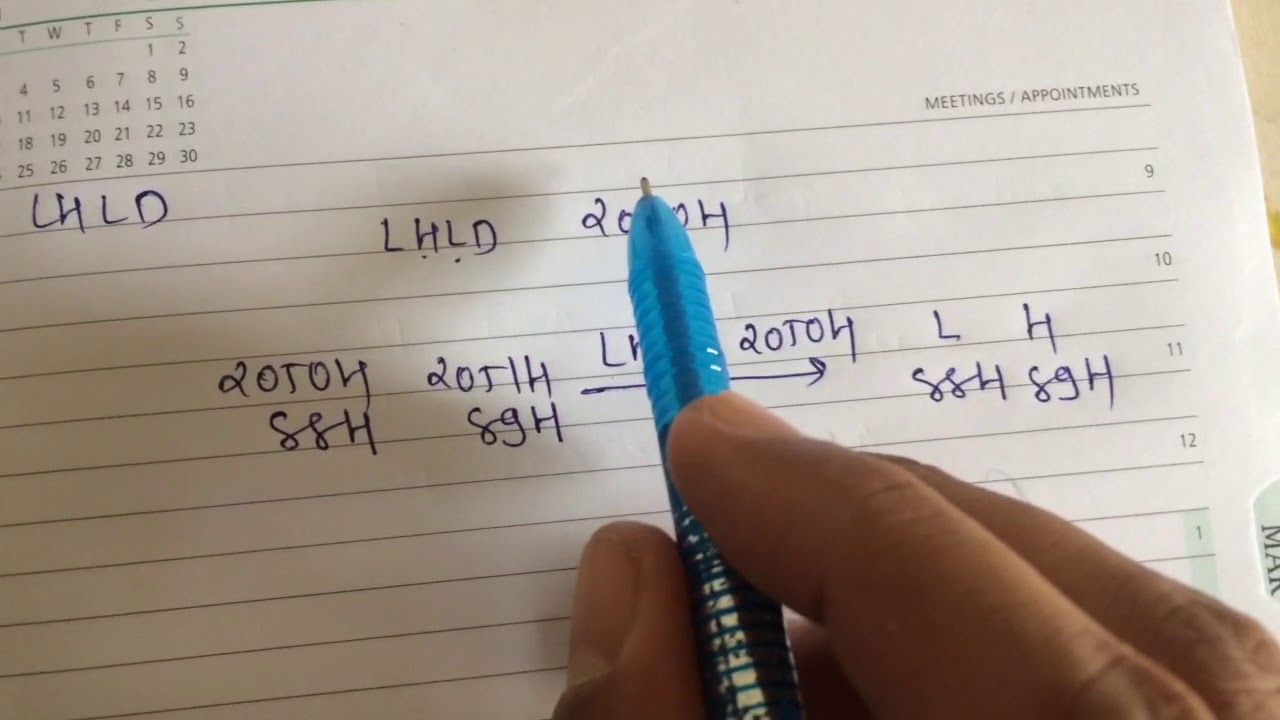 T W T F S S
1 2
4 5 6 7 8 9
11 12 13 14 15 16
18 19 20 21 22 23
25 26 27 28 29 30
MEETINGS / APPOINTMENTS
9
LHLD
LHLD
10
2050H 2051H 2050H L H
88H 89H 88H 89H
11
12
1